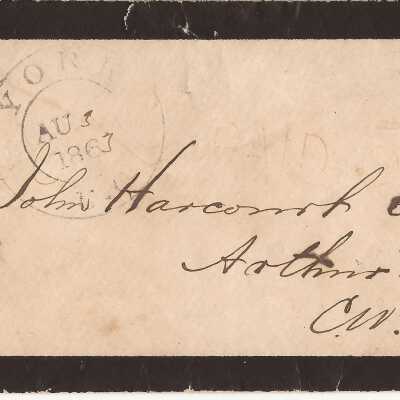 YORK
AU 3
1863
PAID
John Harcourt
Arthur
C.W.